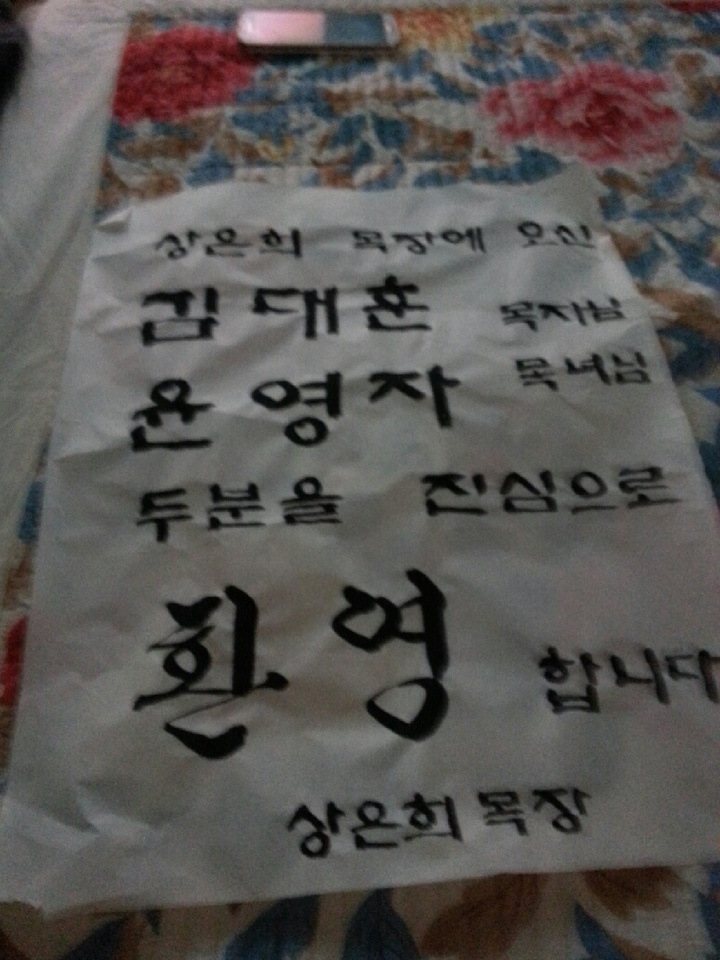 상은희 목장에 오신
김대훈 목자님
윤영자 목녀님
두분을 진심으로
환영 합니다
상은희 목장